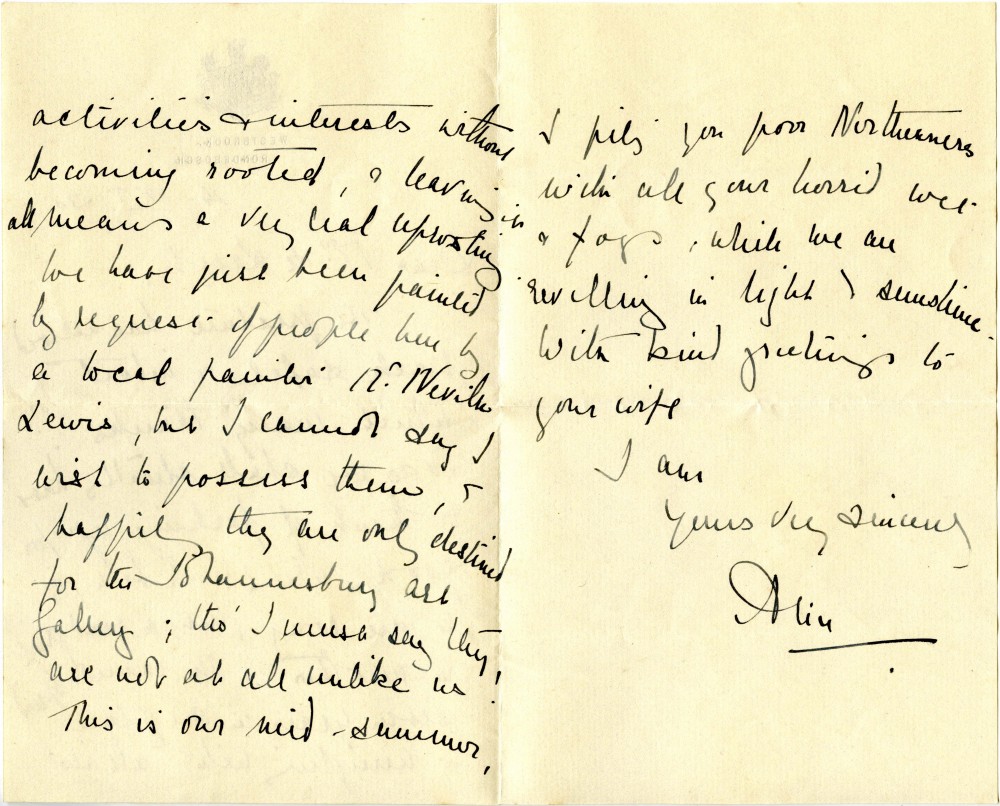 activities & interests without
becoming rooted, & leaving it
all means a very real uprooting
We have just been painted
by request of people here by
a local painter Mr. Neville
Lewis, but I cannot say I
wish to possess them, &
happily they are only destined
for the Johannesburg art
Gallery; tho' I must say they
are not at all unlike us!
This is our mid-summer,
I pity you poor Northerners
with all your horrid wet
& fogs, while we are
revelling in light & sunshine.
With kind greetings to
your wife
I am
Yours very sincerely
Alice